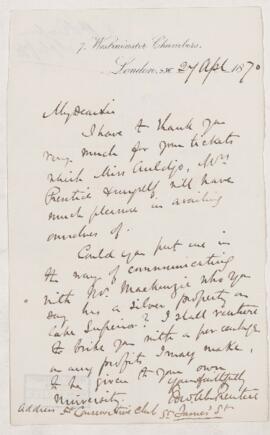 7, Westminster Chambers,
London, S.W. 27 Apl 1870
My Dear Sir
I have to thank you
very much for your tickets
which Miss Auldjo, Mrs
Prentice & myself will have
much pleasure in availing
ourselves of.
Could you put me in
the way of communicating
with Mr Mackenzie who you
say has a silver property on
Lake Superior? I shall venture
to bribe you with a percentage
on any profits I may make,
to be given to your own
University. Yours faithfully
Address: Conservative Club St James' St